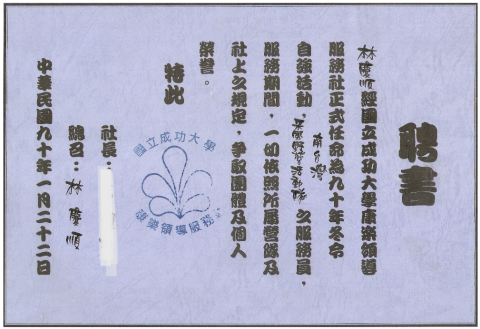 聘書
林慶順經國立成功大學康樂領導
服務社正式任命為九十年冬令
自強活動,南台灣
之服務員,
服務期間,一切依照所屬營隊及
社上之規定,爭取團體及個人
榮譽。
特此
國立成功大學
康樂領導服務社
社長:
總召:林慶順
中華民國九十年一月二十二日